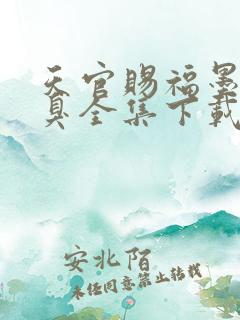 天官赐福墨
真全集下载
安北陌
未经同意禁止转载